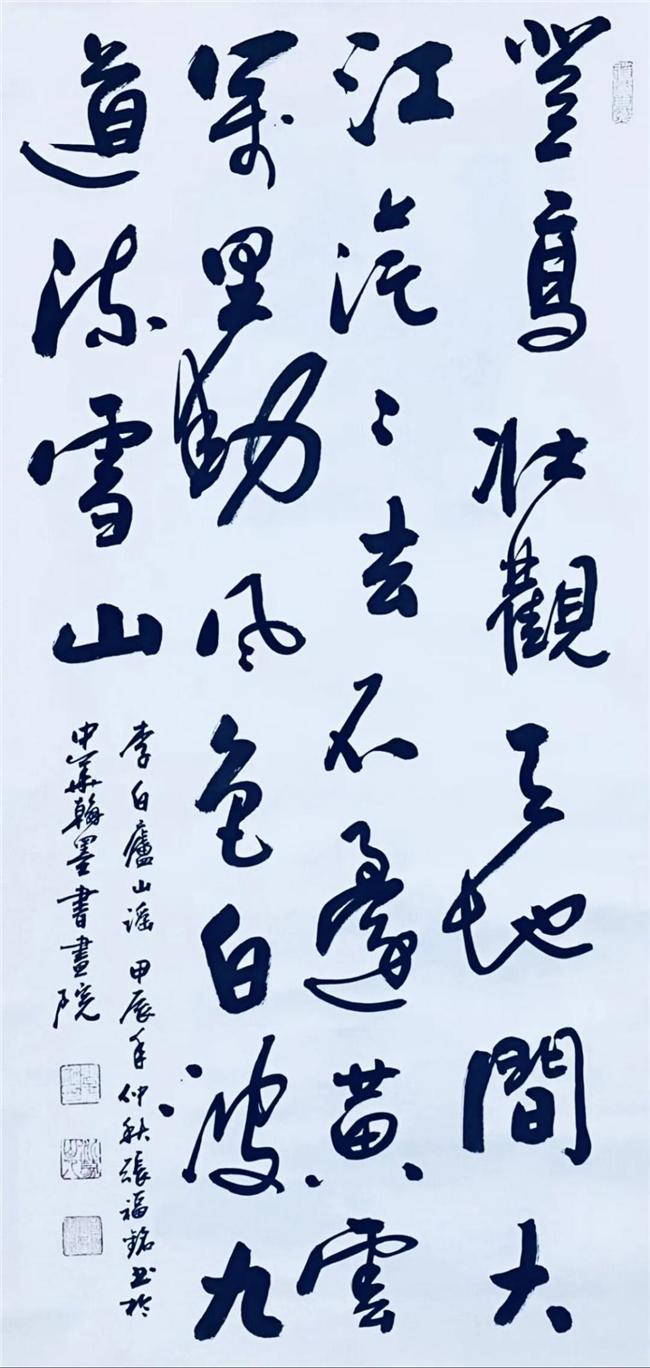 登高壯觀天地間大
江茫〻去不還黃雲
萬里動風色白波九
道流雪山
李白廬山謠 甲辰年仲秋張福銘书於
中華翰墨書畫院